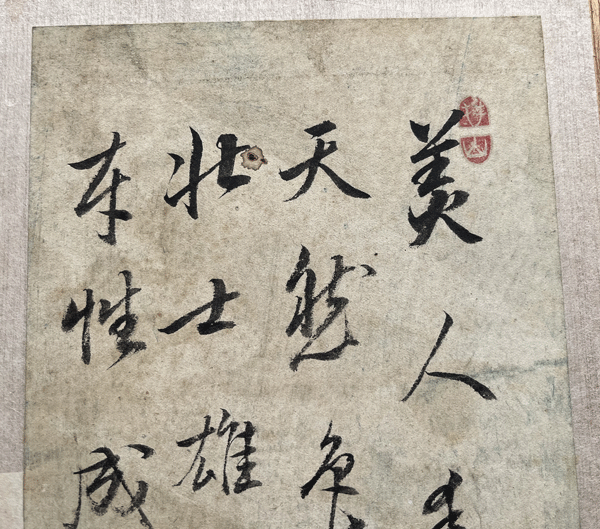 美人
天然
壮士雄
本性成